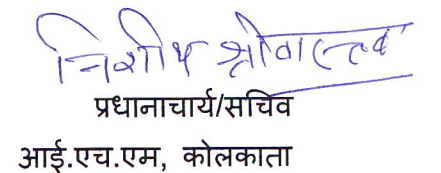 निशीथ श्रीवास्तव
प्रधानाचार्य/सचिव
आई.एच.एम, कोलकाता